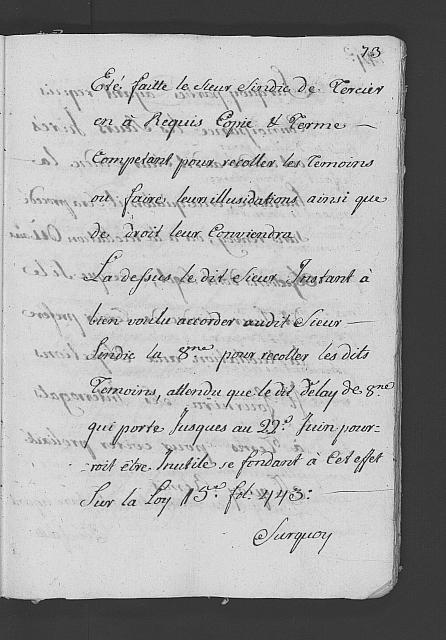 73
Eté faitte le sieur Sindic de Tercier
en à Requis Copie & Terme —
Competant pour recoller les Temoins
ou faire leur illusidations ainsi que
de droit leur Conviendra
La dessus le dit Sieur Instant à
bien voulu accorder audit Sieur —
Sindic la 8.me pour recoller les dits
Temoins, attendu que le dit délay de 8.ne
qui porte Jusques au 22.d Juin pour-
-roit être Inutile se fondant à Cet effet
Sur la Loy 15.e fol: 443: —
Surquoy